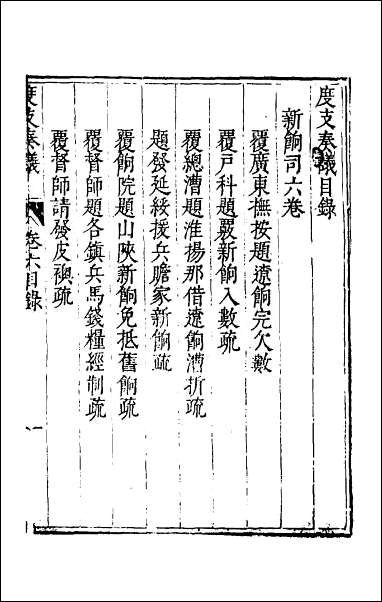 度支奏議目錄
新餉司六卷
覆廣東撫按題遼餉完欠數
覆戶科題覈新餉入數疏
覆總漕題淮揚那借遼餉漕折疏
題發延綏援兵贍家新餉疏
覆餉院題山陝新餉免抵舊餉疏
覆督師題各鎮兵馬錢糧經制疏
覆督師請發皮襖疏
度支奏議
卷六目錄
一